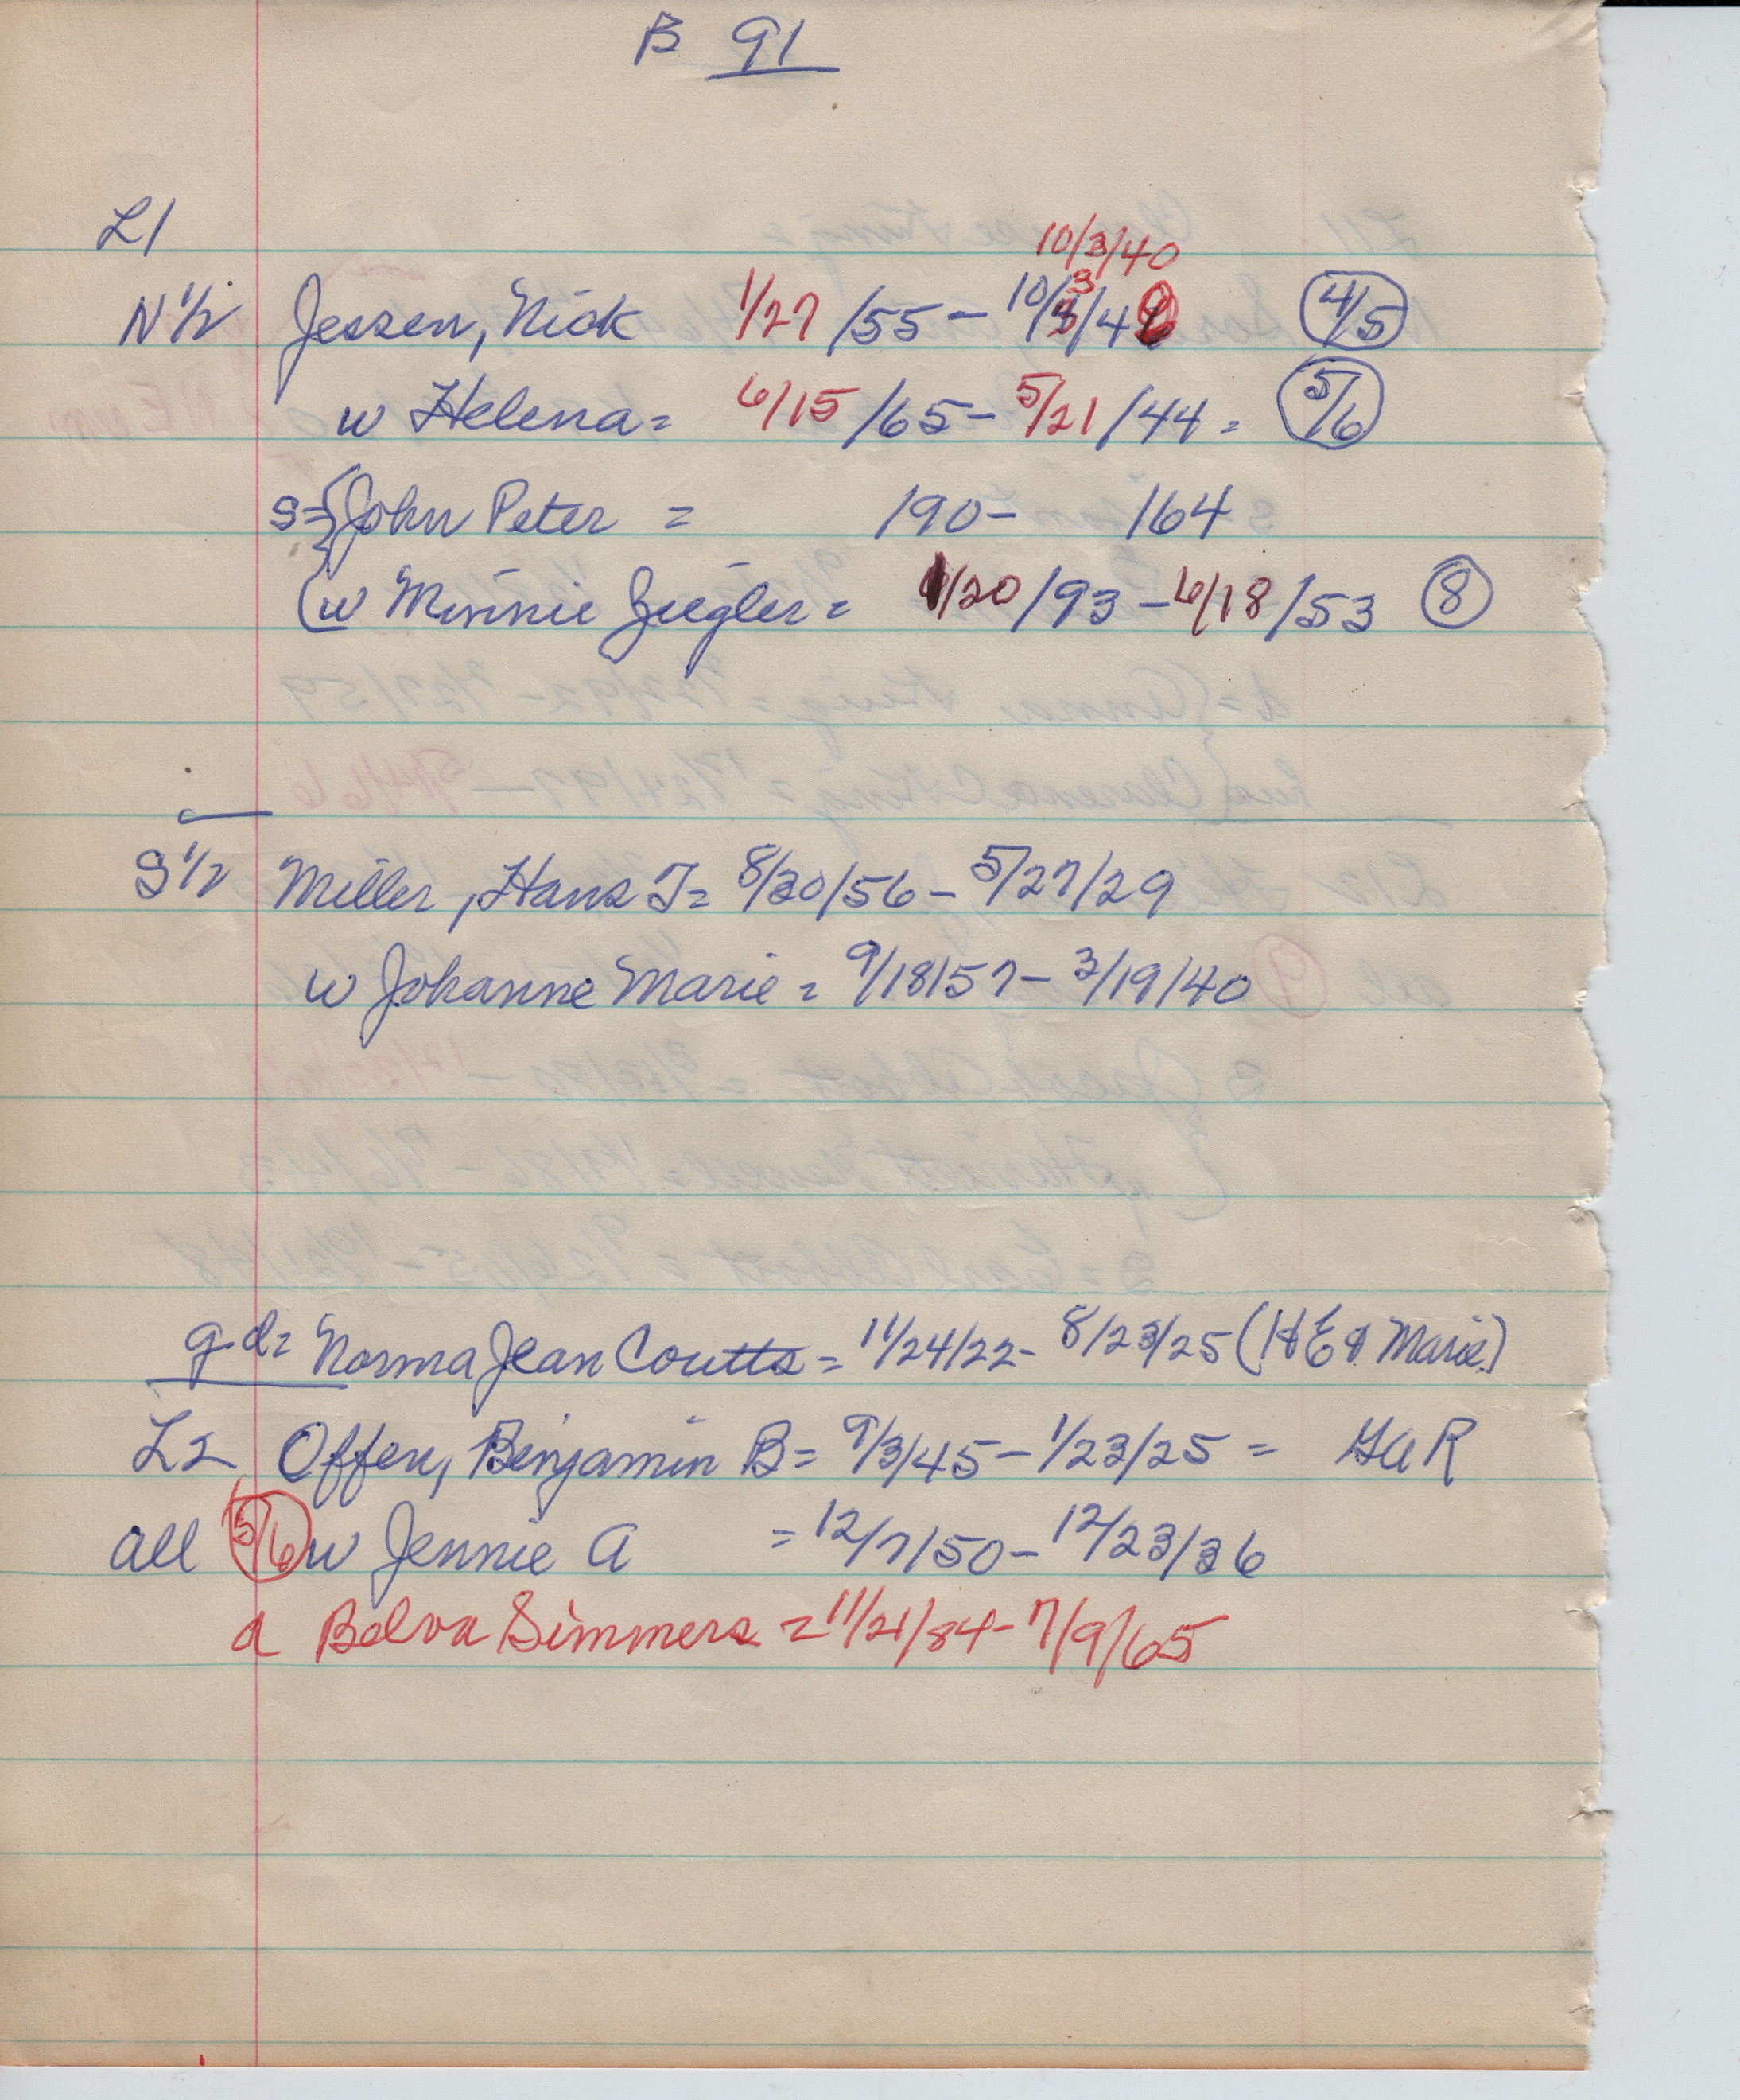 B 91
L1
10/3/40
N 1/2 Jessen, Nick 1/27/55 - 10/3/40 4/5
w Helena = 6/15/65 - 5/21/44 = 5/6
s = { John Peter = /90 - /64
( w Minnie Ziegler = /20/93 - 6/18/53 8
S 1/2 Miller, Hans J = 8/30/56 - 5/27/29
w Johanne Marie = 9/18/57 - 3/19/40
g.d = Norma Jean Coutts = 11/24/22 - 8/23/25 (H E & Marie)
L2 Offen, Benjamin B = 9/3/45 - 1/23/25 = GAR
all 5/6 w Jennie A = 12/7/50 - 12/23/36
d Belva Simmers = 11/21/84 - 7/9/65